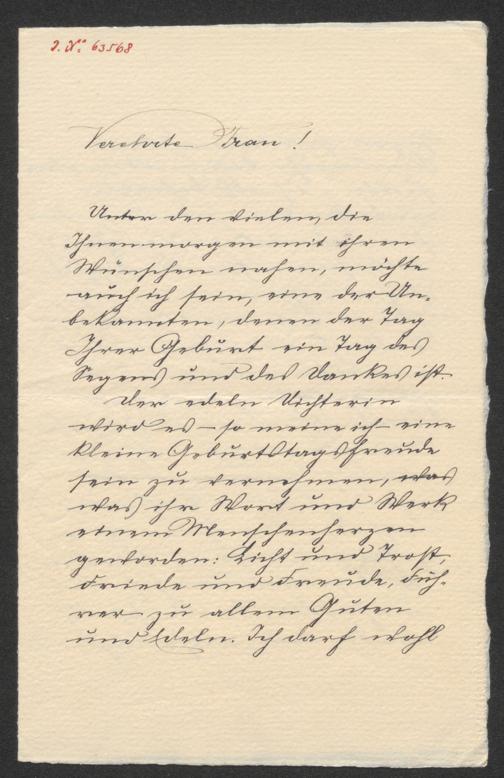 J. No 63568
Verehrte Frau!
Unter den vielen, die
Ihnen morgen mit ihren
Wünschen nahen, möchte
auch ich sein, eine der Un-
bekannten, denen der Tag
Ihrer Geburt ein Tag des
Segens und des Dankes ist.
Der edeln Dichterin
wird es – so meine ich – eine
kleine Geburtstagsfreude
sein zu vernehmen, was
was ihr Wort und Werk
einem Menschenherzen
geworden: Licht und Trost,
Friede und Freude, Füh-
rer zu allem Guten
und Edeln. Ich darf wohl